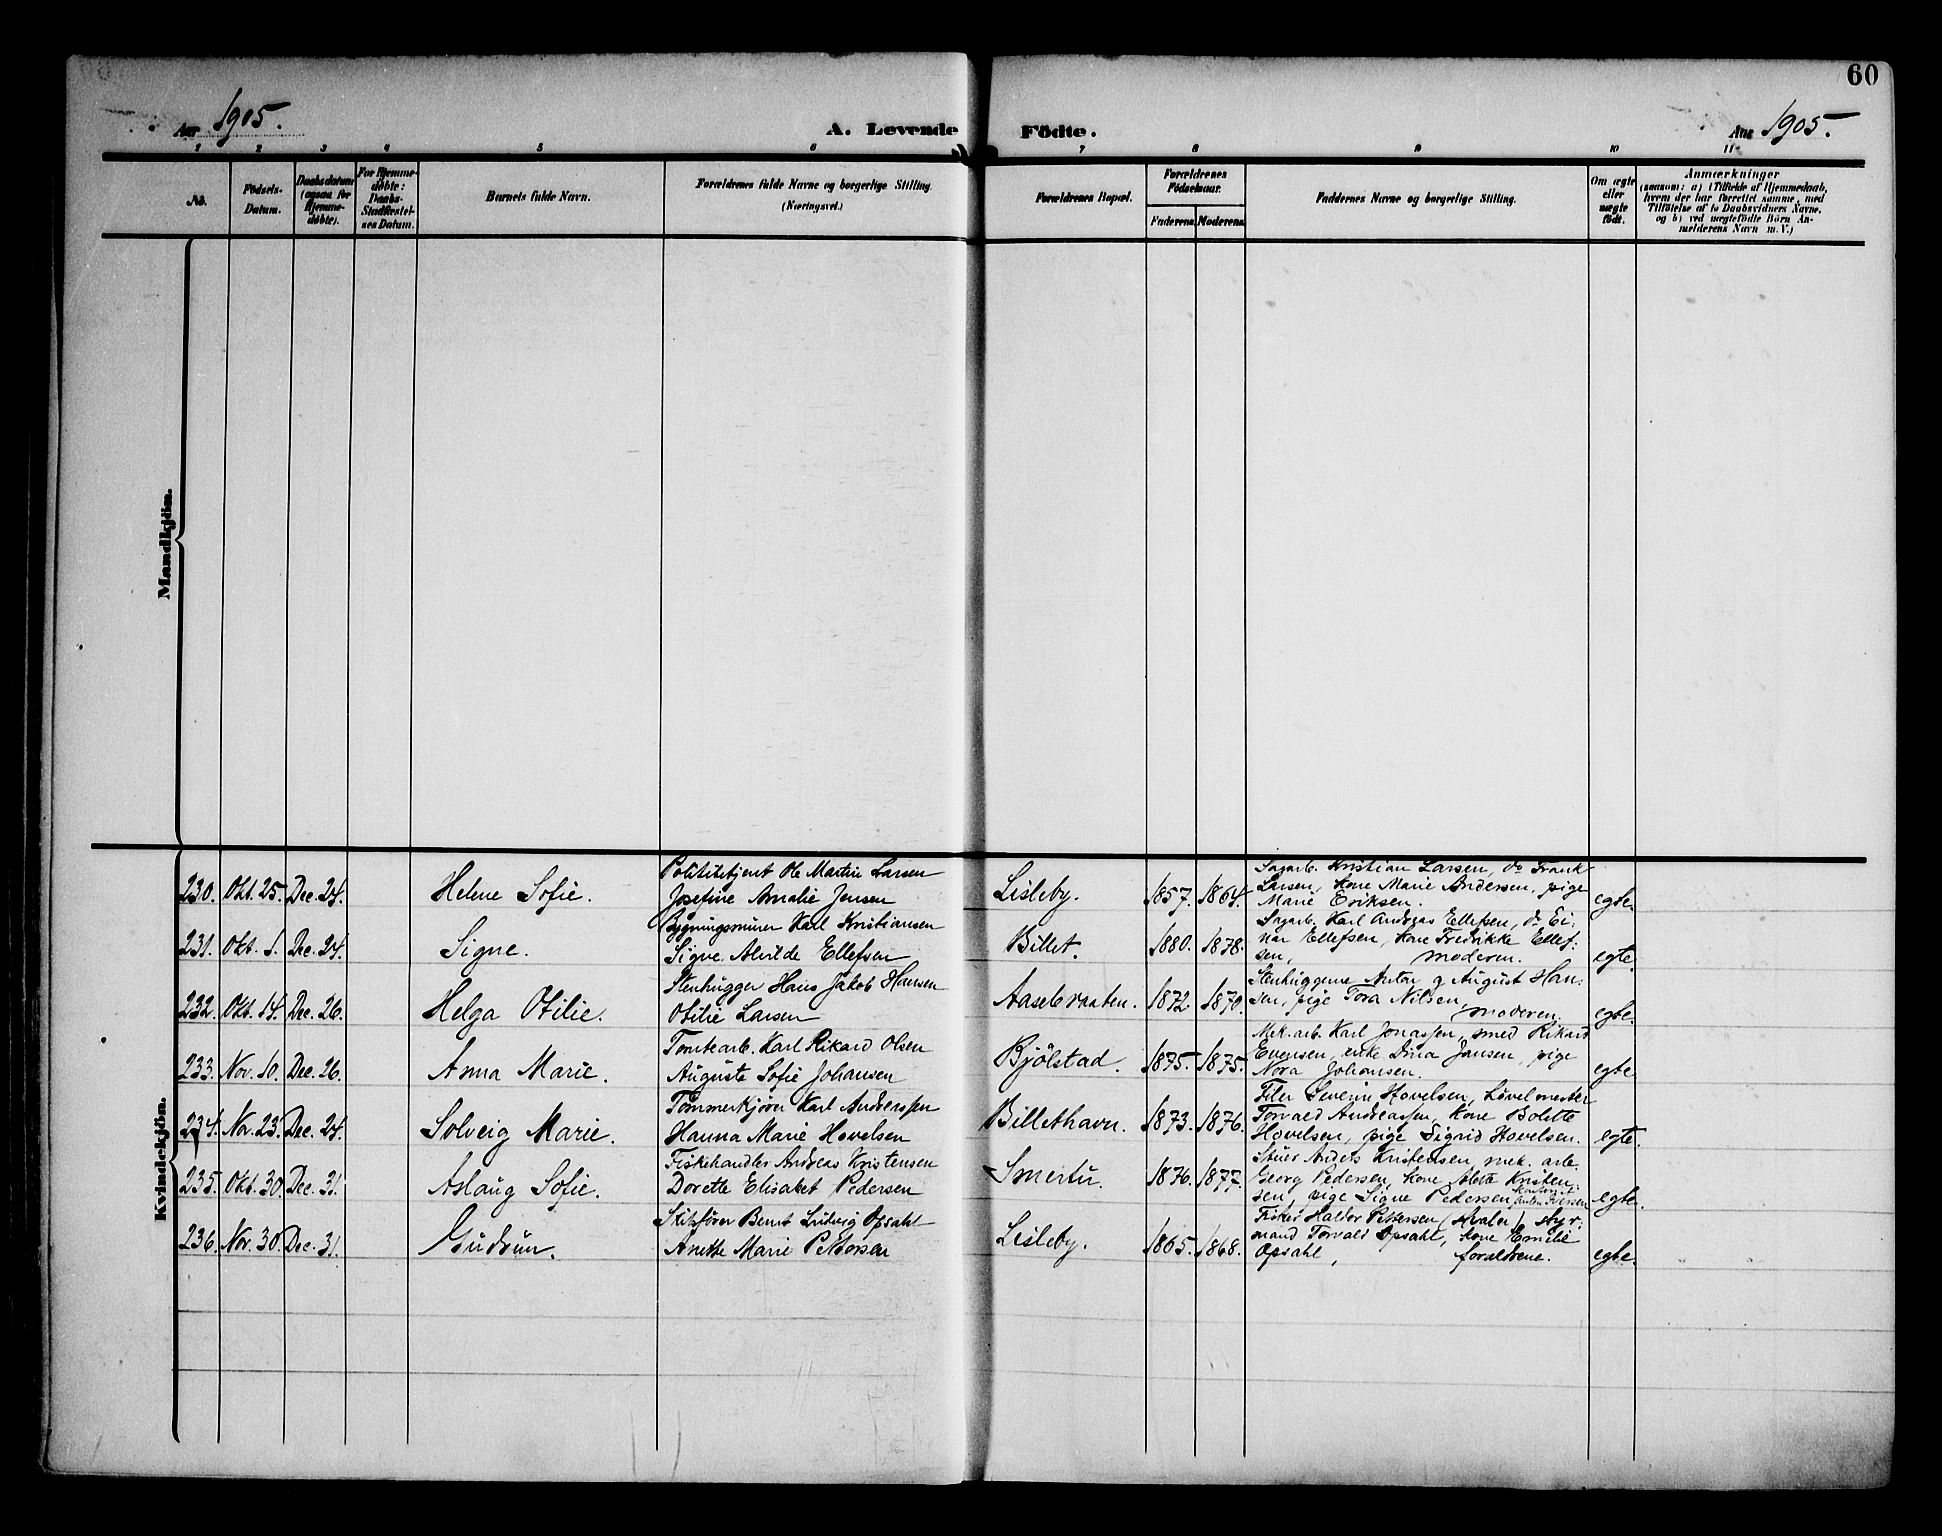 60
Aar 1905. A. Levende Födte. Aar 1905.
1 2 3 4 5 6 7 8 9 10 11
No.
Födsels-Datum.
Daabsdatum (ogsaa for Hjemme-döbte).
For Hjemme-döbte: Daabs-Stadfæstel-ses Datum.
Barnets fulde Navn.
Forældrenes fulde Navne og borgerlige Stilling. (Næringsvei.)
Forældrenes Bopæl.
Forældrenes Födselsaar.
Faderens. Moderens.
Faddernes Navne og borgerlige Stilling.
Om ægte eller uægte födt.
Anmærkninger
(saasom: a) i Tilfælde af Hjemmedaab,
hvem der har forrettet samme, med
Tilföielse af to Daabsvidners Navne,
og b) ved uægtefödte Börn An-
melderens Navn m. V.)
Mandkjön.
Kvindekjön.
230. Okt. 25. Dec. 24. Helene Sofie.
Polititjent Ole Martin Larsen
Josefine Amalie Jensen
Lisleby. 1857. 1864.
Sagarb. Kristian Larsen, do Frank
Larsen, kone Marie Andersen, pige
Marie Eriksen.
egte.
231. Okt. 1. Dec. 24. Signe.
Bygningsmurer Karl Kristiansen
Signe Alvilde Ellefsen
Billet. 1880. 1878.
Sagarb. Karl Andreas Ellefsen, do Ei-
nar Ellefsen, kone Fredrikke Ellef-
sen, moderen.
egte.
232. Okt. 14. Dec. 26. Helga Otilie.
Stenhugger Hans Jakob Hansen
Otilie Larsen
Aasebraaten. 1872. 1870.
Stenhuggerne Anton og August Han-
sen, pige Tora Nilsen, moderen.
egte.
233. Nov. 10. Dec. 26. Anna Marie.
Tomtearb. Karl Rikard Olsen
Auguste Sofie Johansen
Bjölstad. 1875. 1875.
Mek. arb. Karl Jonassen, smed Rikard
Evensen, enke Dina Jansen, pige
Nora Johansen.
egte.
234. Nov. 23. Dec. 24. Solveig Marie.
Tömmerkjörer Karl Andreassen
Hanna Marie Hovelsen
Billethavn. 1873. 1876.
Filer Severin Hovelsen,
Torvald Andreassen, kone Bolette
Hovelsen, pige Sigrid Hovelsen.
egte.
235. Okt. 30. Dec. 31. Aslaug Sofie.
Fiskehandler Andreas Kristensen
Dorette Elisabet Pedersen
Smertu. 1876. 1877.
Stuer Anders Kristensen, mek. arb.
Georg Pedersen, kone Kristen-
sen, pige Signe Pedersen Iversen
egte.
236. Nov. 30. Dec. 31. Gudrun.
Skibsförer Bernt Ludvig Opsahl
Anette Marie Pettersen
Lisleby. 1865. 1868.
Fisker Haldor Pettersen (Hvaler) styr-
mand Torvald Opsahl, kone Emilie
Opsahl, foraldrene.
egte.